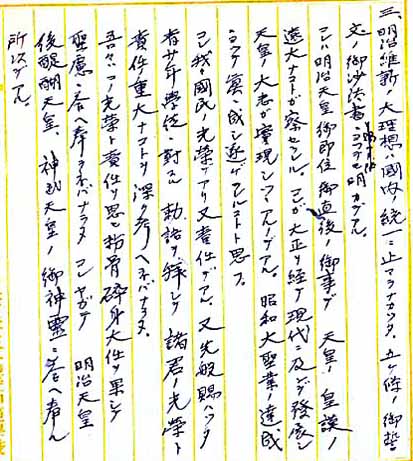 三、明治維新ノ大理想ハ國内ノ統一ニ止マラナカッタ、五ヶ條ノ御誓
文ノ御沙法書ニヨッテモ明カデアル。
コレハ明治天皇御即位御直後ノ御事デ 天皇ノ皇謨ノ
遠大ナコトガ察セラレル。コレガ大正ヲ経テ現代ニ及ンデ發展シ
天皇ノ大志が實現シツツアルノデアル。昭和大聖業ノ達成
ニヨッテ眞ニ成シ遂ゲラレルコトト思フ。
コレ我々國民ノ光榮デアリ又責任デアル。又先般賜ハッタ
青少年學徒ニ對スル 勅語ヲ拝シテ 諸君ノ光榮ト
責任ノ重大ナコトヲ深ク考ヘネバナラヌ。
吾々ハコノ光榮ト責任ヲ思ヒ粉骨碎身大任ヲ果シテ
聖慮ニ答ヘ奉ラネバナラヌ コレヤガテ 明治天皇
後醍醐天皇、神武天皇ノ御神靈ニ答ヘ奉ル
所以デアル。